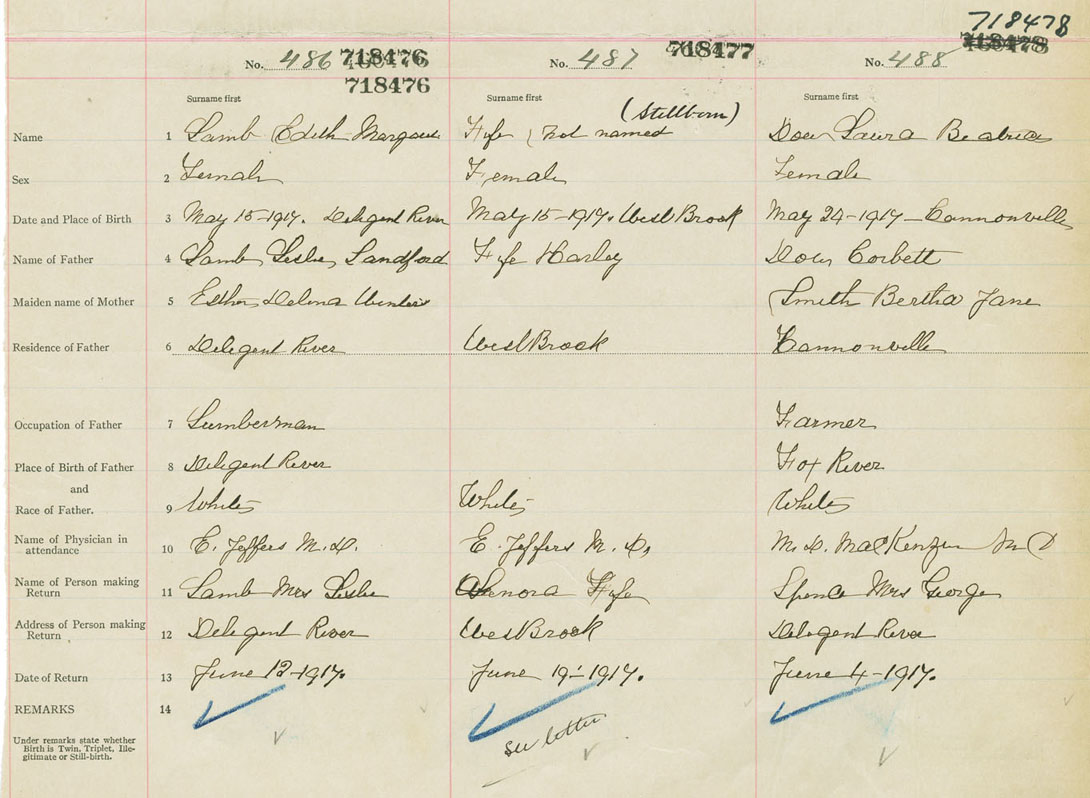 718478
No. 486 718476 No. 487 718477 No. 488 718478
718476
Surname first Surname first Surname first
(Stillborn)
Name 1 Lamb Edith Margaret Fyfe (not named Dow Laura Beatrice
Sex 2 Female Female Female
Date and Place of Birth 3 May 15-1917. Delegent River May 15-1917. West Brook May 24-1917-Cannonville
Name of Father 4 Lamb, Leslie, Sandford Fyfe Harley Dow, Corbett
Maiden name of Mother 5 Esther Delena Smith Bertha Jane
Residence of Father 6 Delegent River West Brook Cannonville
Occupation of Father 7 Lumberman Farmer
Place of Birth of Father 8 Delegent River Fox River
and
Race of Father. 9 White White White
Name of Physician in attendance 10 E. Jeffers M.D. E. Jeffers M.D. M.D. MacKenzie M D
Name of Person making Return 11 Lamb Mrs Leslie Fyfe Spence Mrs George
Address of Person making Return 12 Delegent River West Brook Delegent River
Date of Return 13 June 12-1917. June 19-1917. June 4-1917.
REMARKS 14
see letter
Under remarks state whether
Birth is Twin, Triplet, Ille-
gitimate or Still-birth.